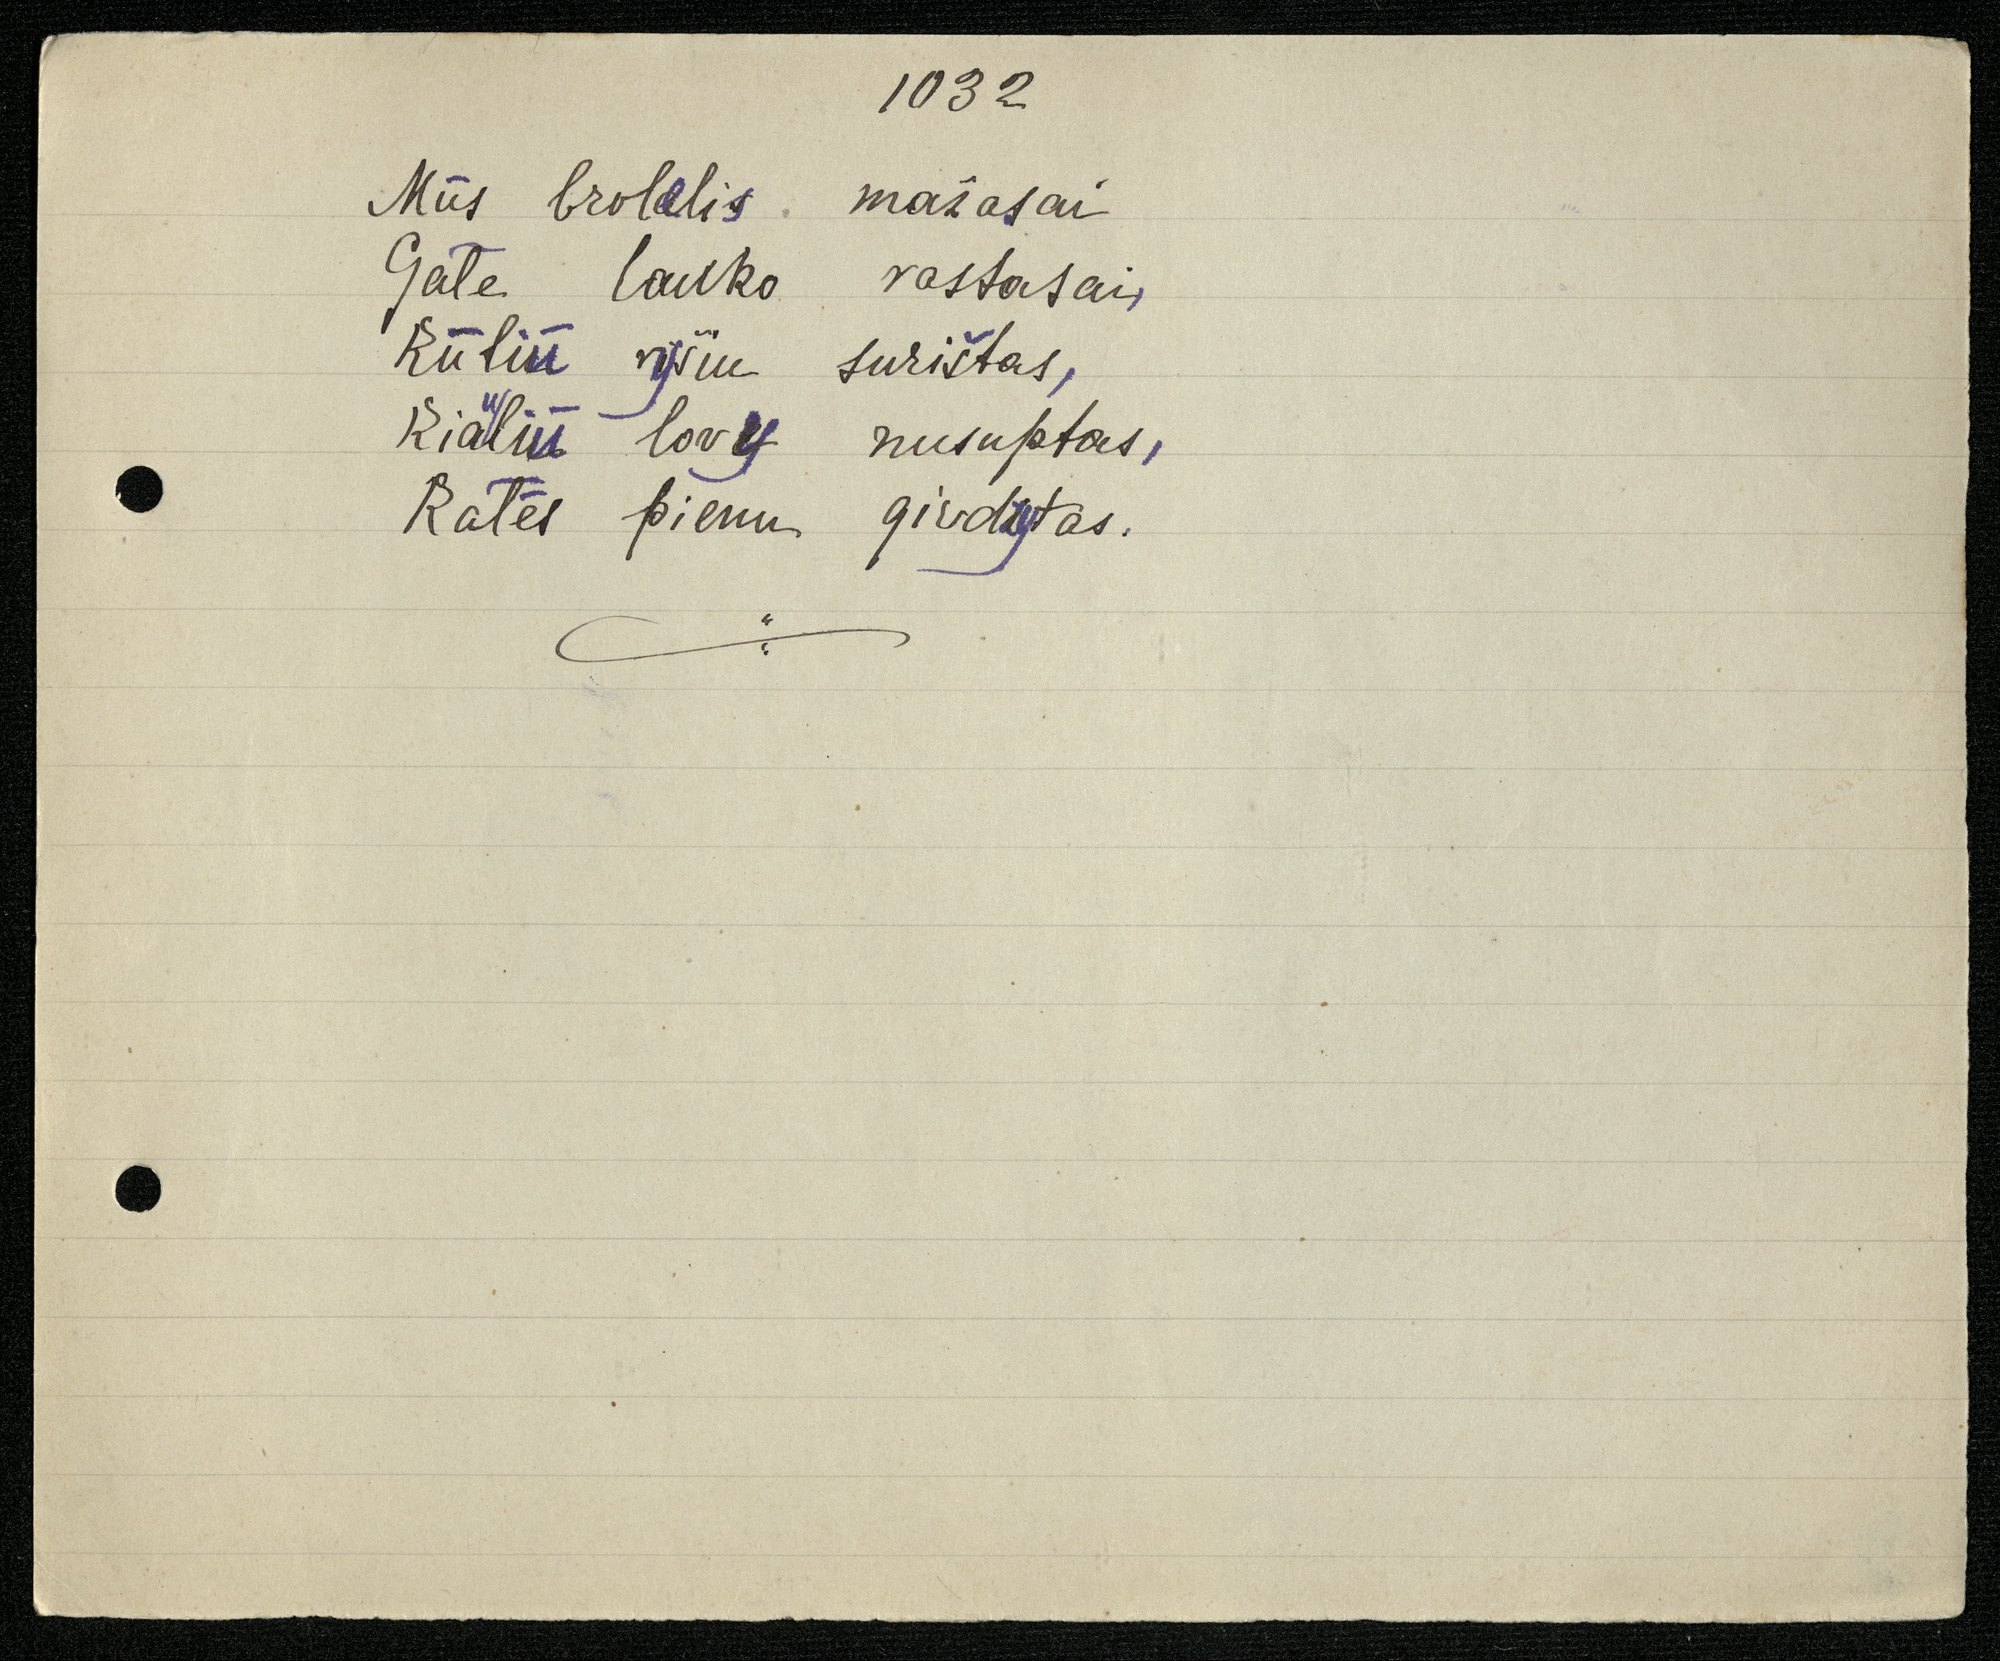 1032
Mūs brolelis mažasai
Gatė lauko rastasai,
Kūlių ryšiu surištas,
Kiaulių lovy nusuptas,
Katės pienu girdytas.